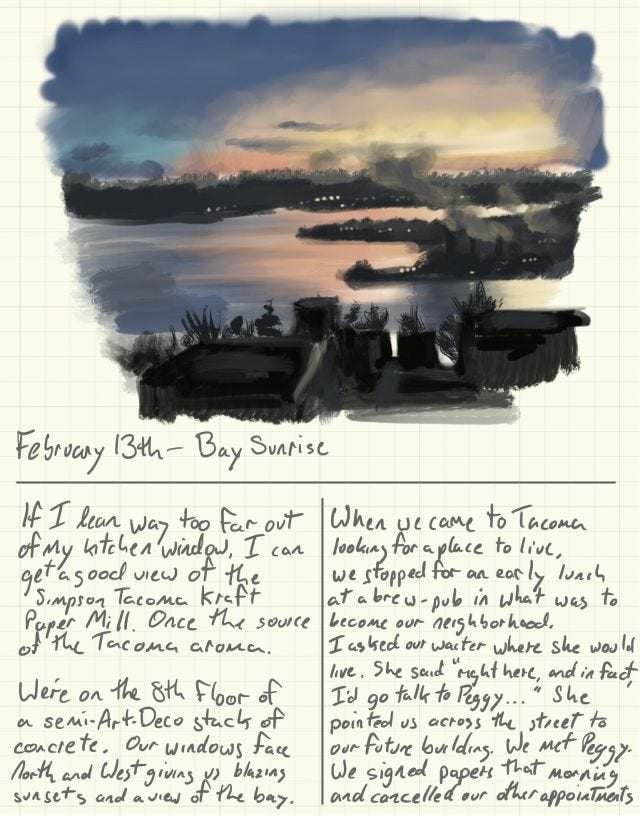 February 13th - Bay Sunrise
If I lean way too far out
of my kitchen window, I can
get a good view of the
Simpson Tacoma Kraft
Paper Mill. Once the source
of the Tacoma aroma.
We're on the 8th floor of
a semi-Art-Deco stack of
concrete. Our windows face
North and West giving us blazing
sunsets and a view of the bay.
When we came to Tacoma
looking for a place to live,
we stopped for an early lunch
at a brew-pub in what was to
become our neighborhood.
I asked our waiter where she would
live. She said "right here, and in fact,
I'd go talk to Peggy..." She
pointed us across the street to
our future building. We met Peggy.
We signed papers that morning
and cancelled our other appointments